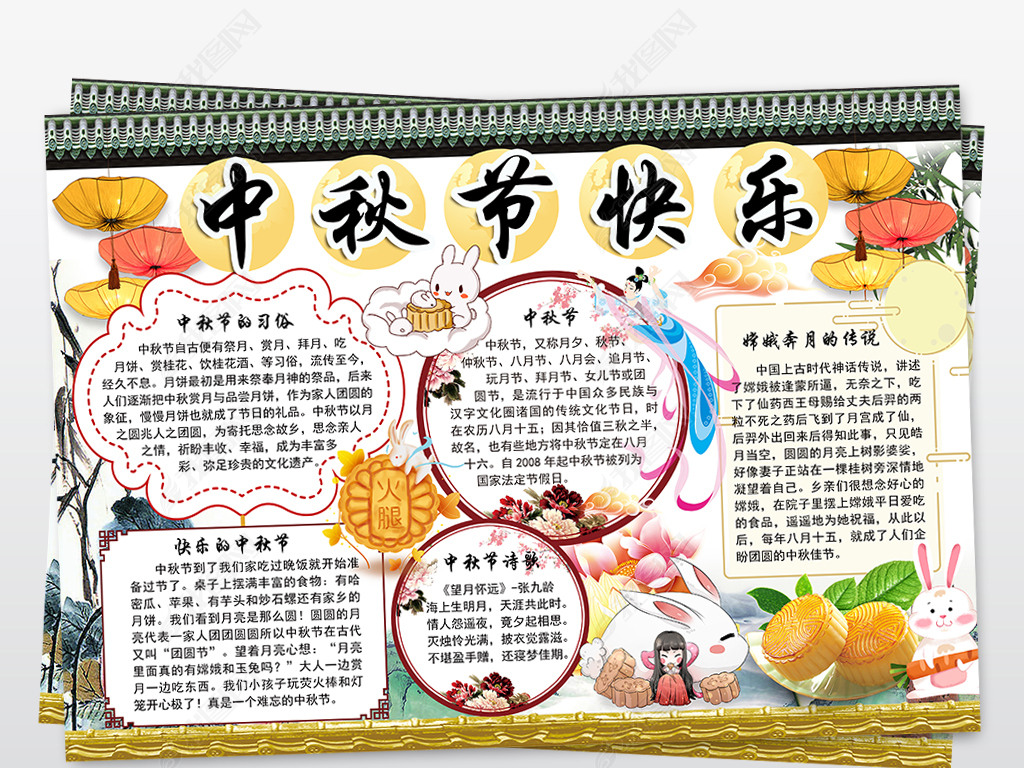 中秋节快乐
中秋节的习俗
中秋节自古便有祭月、赏月、拜月、吃
月饼、赏桂花、饮桂花酒、等习俗，流传至今，
经久不息。月饼最初是用来祭奉月神的祭品，后来
人们逐渐把中秋赏月与品尝月饼，作为家人团圆的
象征，慢慢月饼也就成了节日的礼品。中秋节以月
之圆兆人之团圆，为寄托思念故乡，思念亲人
之情，祈盼丰收、幸福，成为丰富多
彩、弥足珍贵的文化遗产。
中秋节
中秋节，又称月夕、秋节、
仲秋节、八月节、八月会、追月节、
玩月节、拜月节、女儿节或团
圆节，是流行于中国众多民族与
汉字文化圈诸国的传统文化节日，时
在农历八月十五；因其恰值三秋之半，
故名，也有些地方将中秋节定在八月
十六。自2008年起中秋节被列为
国家法定节假日。
嫦娥奔月的传说
中国上古时代神话传说，讲述
了嫦娥被逢蒙所逼，无奈之下，吃
下了仙药西王母赐给丈夫后羿的两
粒不死之药后飞到了月宫成了仙，
后羿外出回来后得知此事，只见皓
月当空，圆圆的月亮上树影婆娑，
好像妻子正站在一棵桂树旁深情地
凝望着自己。乡亲们很想念好心的
嫦娥，在院子里摆上嫦娥平日爱吃
的食品，遥遥地为她祝福，从此以
后，每年八月十五，就成了人们企
盼团圆的中秋佳节。
火腿
快乐的中秋节
中秋节到了我们家吃过晚饭就开始准
备过节了。桌子上摆满丰富的食物：有哈
密瓜、苹果、有芋头和炒石螺还有家乡的
月饼。我们看到月亮是那么圆！圆圆的月
亮代表一家人团团圆圆所以中秋节在古代
又叫“团圆节”。望着月亮心想：“月亮
里面真的有嫦娥和玉兔吗？”大人一边赏
月一边吃东西。我们小孩子玩荧火棒和灯
笼开心极了！真是一个难忘的中秋节。
中秋节诗歌
《望月怀远》-张九龄
海上生明月，天涯共此时。
情人怨遥夜，竟夕起相思。
灭烛怜光满，披衣觉露滋。
不堪盈手赠，还寝梦佳期。